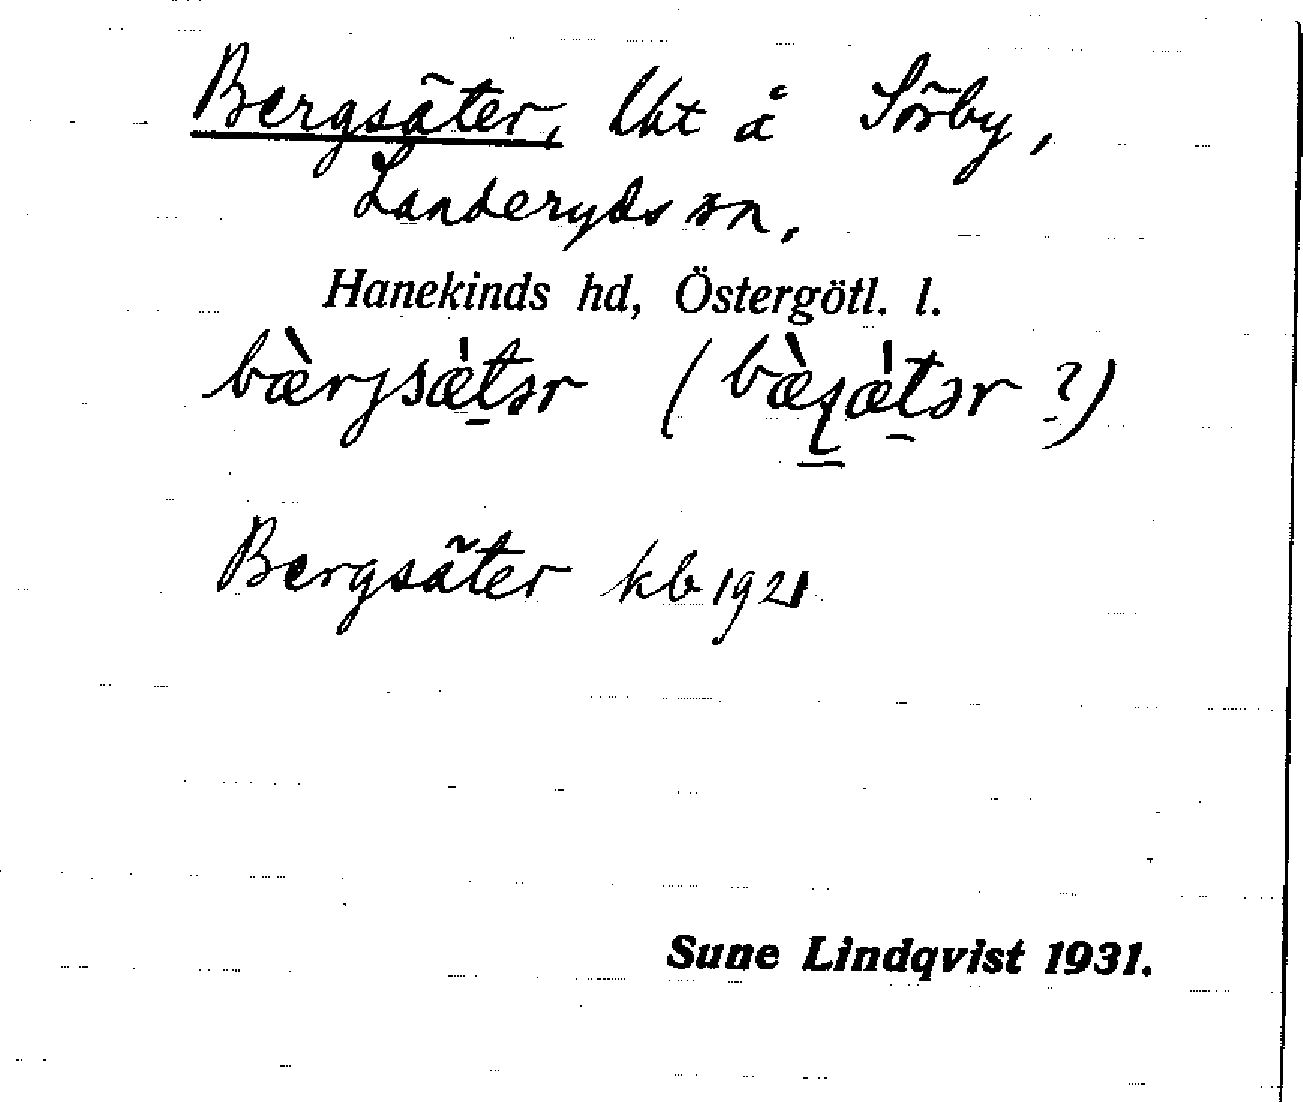 Bergsäter, lht å Sörby,
Landeryds sn,
Hanekinds hd, Östergötl. l.
bæ̀rjsæ̀tər (bæ̀ʂæ̀tər ?)
Bergsäter kb 1921
Sune Lindqvist 1931.